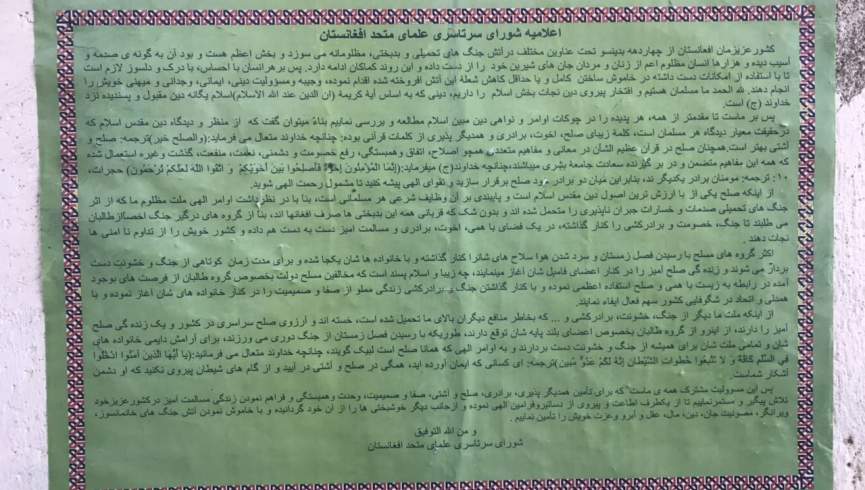 اعلامیه شورای سرتاسری علمای متحد افغانستان
کشورعزیزمان افغانستان از چهاردهه بدینسو تحت عناوین مختلف درآتش جنگ های تحمیلی و بدبختی، مظلومانه می سوزد و بخش اعظم هست و بود آن به گونه ی صدمه و
آسیب دیده و هزارها انسان مظلوم اعم از زنان و مردان جان های شیرین خود را از دست داده و این روند کماکان ادامه دارد. پس برهرانسان با احساس، با درک و دلسوز لازم است
تا با استفاده از امکانات دست داشته در خاموش ساختن کامل و یا حداقل کاهش شعله این آتش افروخته شده اقدام نموده، وجیبه ومسؤولیت دینی، ایمانی، وجدانی و میهنی خویش را
انجام دهند. لله الحمد ما مسلمان هستیم و افتخار پیروی دین نجات بخش اسلام را داریم، دینی که به اساس آیة کریمة (ان الدین عند الله الاسلام)اسلام یگانه دین مقبول و پسندیده نزد
خداوند (ج) است.
پس بر ماست تا مقدمتر از همه، هر پدیده را در چوکات اوامر و نواهی دین مبین اسلام مطالعه و بررسی نماییم بناءً میتوان گفت که از منظر و دیدگاه دین مقدس اسلام که
درحقیقت معیار دیدگاه هر مسلمان است، کلمة زیبای صلح، اخوت، برادری و همدیگر پذیری از کلمات قرآنی بوده: چنانچه خداوند متعال می فرماید:(والصلح خیر)ترجمه: صلح و
آشتی بهتر است.همچنان صلح در قرآن عظیم الشأن در معانی و مفاهیم متعددی همچو اصلاح، اتفاق وهمبستگی، رفع خصومت و دشمنی، نعمت، منفعت، گذشت وغیره استعمال شده
که همه این مفاهیم متضمن و در بر گیرنده سعادت جامعه بشری میباشند،چنانچه خداوند(ج) میفرماید:((إِنَّمَا الْمُؤْمِنُونَ إِخْوَةٌ فَأَصْلِحُوا بَيْنَ أَخَوَيْكُمْ وَ اتَّقُوا اللَّهَ لَعَلَّكُمْ تُرْحَمُونَ) حجرات،
۱۰: ترجمه: مومنان برادر یکدیگر ند، بنابراین میان دو برادر خود صلح برقرار سازید و تقوای الهی پیشه کنید تا مشمول رحمت الهی شوید.
از اینکه صلح یکی از با ارزش ترین اصول دین مقدس اسلام است و پایبندی بر آن وظایف شرعی هر مسلمانی است، بنا با در نظرداشت اوامر الهی ملت مظلوم ما که از اثر
جنگ های تحمیلی صدمات و خسارات جبران ناپذیری را متحمل شده اند و بدون شک که قربانی همه این بدبختی ها صرف افغانها اند، بناً از گروه های درگیر جنگ اخصاًازطالبان
می طلبند تا جنگ، خصومت و برادرکشی را کنار گذاشته، در یک فضای با همی، اخوت، برادری و مسالمت آمیز دست به دست هم داده و کشور خویش را از تداوم نا امنی ها
نجات دهند .
اکثر گروه های مسلح با رسیدن فصل زمستان و سرد شدن هوا سلاح های شانرا کنار گذاشته و با خانواده ها شان یکجا شده و برای مدت زمان کوتاهی از جنگ و خشونت دست
بردار می شوند و زنده گی صلح آمیز را در کنار اعضای فامیل شان آغاز مینمایند، چه زیبا و اسلام پسند است که مخالفین مسلح دولت بخصوص گروه طالبان از فرصت های بوجود
آمده در رابطه به زیست با همی و صلح استفاده اعظمی نموده و با کنار گذاشتن جنگ و برادرکشی زندگی مملو از صفا و صمیمیت را در کنار خانواده های شان آغاز نموده و با
همدلی و اتحاد در شگوفایی کشور سهم فعال ایفاء نمایند.
از اینکه ملت ما دیگر از جنگ، خشونت، برادرکشی و ... که بخاطر منافع دیگران بالای ما تحمیل شده است، خسته اند و آرزوی صلح سراسری در کشور و یک زنده گی صلح
آمیز را دارند، از اینرو از گروه طالبان بخصوص اعضای بلند پایه شان توقع دارند، طوریکه با رسیدن فصل زمستان از جنگ دوری می ورزند، برای آرامش دایمی خانواده های
شان و تمامی ملت شان برای همیشه از جنگ و خشونت دست بردارند و به اوامر الهی که همانا صلح است لبیک گویند، چنانچه خداوند متعال می فرمایید:(يَا أَيُّهَا الَّذِينَ آمَنُوا ادْخُلُوا
فِي السِّلْمِ كَافَّةً وَ لَا تَتَّبِعُوا خُطُوَاتِ الشَّيْطَانِ إِنَّهُ لَكُمْ عَدُوٌّ مُبِينٌ)ترجمه: ای کسانی که ایمان آورده اید، همگی در صلح و آشتی در آیید و از گام های شیطان پیروی نکنید که او دشمن
آشکار شماست.
پس این مسوولیت مشترک همه ی ماست که برای تأمین همدیگر پذیری، برادری، صلح و آشتی، صفا و صمیمیت، وحدت وهمبستگی و فراهم نمودن زندگی مسالمت آمیز درکشورعزیزخود
تلاش پیگیر و مستمرنماییم تا از یکطرف اطاعت و پیروی از دساتیروفرامین الهی نموده و ازجانب دیگر خوشبختی ها را از آن خود گردانیده و با خاموش نمودن آتش جنگ های خانمانسوز،
ویرانگر، مصونیت جان، دین، مال، عقل و آبرو وعزت خویش را تأمین نماییم .
و من الله التوفیق
شورای سرتاسری علمای متحد افغانستان